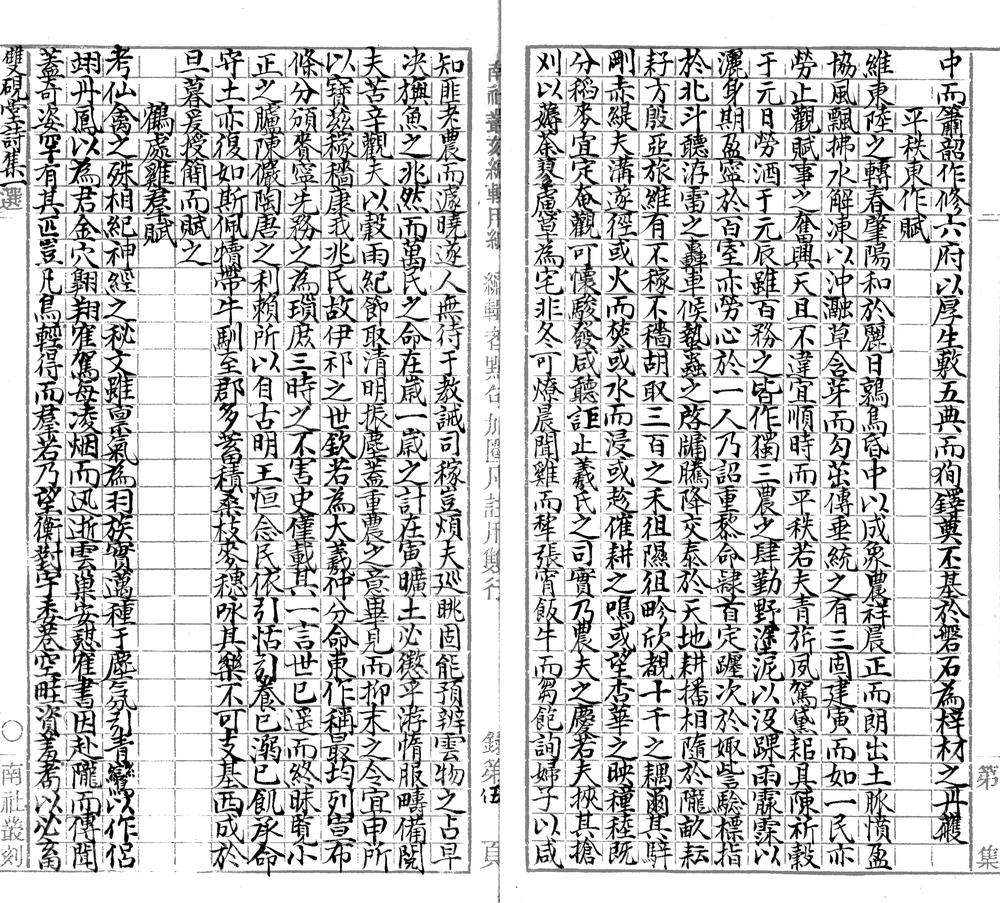 中而簫韶作修六府以厚生敷五典而狥鐸奠丕基於磐石為梓材之丹雘
平秩東作賦
維東陸之轉春肇陽和於麗日鶉鳥昏中以成象農祥晨正而朗出土脈憤盈
協風飄拂水解凍以沖瀜草含芽而勾茁傳垂統之有三固建寅而如一民亦
勞止觀賦事之奮興天且不違宜順時而平秩若夫青旂夙駕黛耜具陳祈穀
于元日勞酒于元辰雖百務之皆作獨三農之肆勤野塗泥以沒踝雨霡霂以
灑身期盈寧於百室亦勞心於一人乃詔重黎命隸首定躔次於娵訾驗標指
於北斗聽洊雷之轟車候蟄蟲之啓牖騰降交泰於天地耕播相隨於隴畝耘
耔方殷亞旅維有不稼不穡胡取三百之禾徂隰徂畛欣覩十千之耦爾其騂
剛赤緹夫溝遂徑或火而焚或水而浸或趁催耕之鳴或望杏華之映穜稑既
分稻麥宜定奄觀可懷駿發咸聽詎止羲氏之司實乃農夫之慶若夫挾其搶
刈以薅荼蓼廬寘為宅非冬可燎晨聞雞而犂張宵飯牛而芻飽詢婦子以咸
知匪老農而遽曉遂人無待于教誡司稼豈煩夫巡眺固能預辨雲物之占早
決旟魚之兆然而萬民之命在歲一歲之計在寅曠土必懲乎游惰服疇備閱
夫苦辛觀夫以穀雨紀節取清明振塵蓋重農之意畢見而抑末之令宜申所
以寶茲稼穡康我兆民故伊祁之世欽若為大羲仲分命東作稱最均列宣布
條分頒賚寧先務之為瑣庶三時之不害史僅載其一言世已遥而終昧覧小
正之臚陳儼陶唐之利賴所以自古明王恒念民依引怙引養已溺已飢承命
守土亦復如斯佩犢帶牛馴至郡多蓄積桑枝麥穗咏其樂不可支基西成於
旦暮爰授簡而賦之
鶴處雞羣賦
考仙禽之殊相紀神經之秘文雖禀氣為羽族實邁種于塵氛引青鸞以作侣
翊丹鳳以為君金穴翺翔寉駕每凌烟而迅逝雲巢安憇寉書因赴隴而傳聞
蓋奇姿罕有其匹豈凡鳥輕得而羣若乃望衡對宇委巷空旺資羞耉以必畜
雙硯堂詩集 選
南社叢刻
第 集
頁